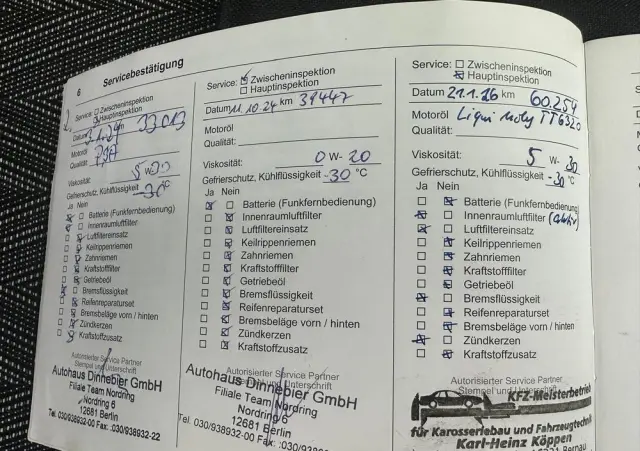 6 Servicebestätigung
Service: Zwischeninspektion
Hauptinspektion
Datum 3.1.24 km 33013
Motoröl
Qualität:
Viskosität: 5 W-30
Gefrierschutz, Kühlflüssigkeit -30 °C
Ja Nein
Batterie (Funkfernbedienung)
Innenraumluftfilter
Luftfiltereinsatz
Keilrippenriemen
Zahnriemen
Kraftstofffilter
Getriebeöl
Bremsflüssigkeit
Reifenreparaturset
Bremsbeläge vorn / hinten
Zündkerzen
Kraftstoffzusatz
Autorisierter Service Partner
Stempel und Unterschrift
Autohaus Dinnebier GmbH
Filiale Team Nordring
Nordring 6
12681 Berlin
Tel. 030/938932-00 Fax :030/938932-22
Service: Zwischeninspektion
Hauptinspektion
Datum 11.10.24 km 39447
Motoröl
Qualität:
Viskosität: 0 W- 20
Gefrierschutz, Kühlflüssigkeit -30 °C
Ja Nein
Batterie (Funkfernbedienung)
Innenraumluftfilter
Luftfiltereinsatz
Keilrippenriemen
Zahnriemen
Kraftstofffilter
Getriebeöl
Bremsflüssigkeit
Reifenreparaturset
Bremsbeläge vorn / hinten
Zündkerzen
Kraftstoffzusatz
Autorisierter Service Partner
Stempel und Unterschrift
Autohaus Dinnebier GmbH
Filiale Team Nordring
Nordring 6
12681 Berlin
Tel. 030/938932-00 Fax :030/938
Service: Zwischeninspektion
Hauptinspektion
Datum 21.1.26 km 60.254
Motoröl Liqui Moly TT6320
Qualität:
Viskosität: 5 W- 30
Gefrierschutz, Kühlflüssigkeit -30 °C
Ja Nein
Batterie (Funkfernbedienung)
Innenraumluftfilter (aktiv)
Luftfiltereinsatz
Keilrippenriemen
Zahnriemen
Kraftstofffilter
Getriebeöl
Bremsflüssigkeit
Reifenreparaturset
Bremsbeläge vorn / hinten
Zündkerzen
Kraftstoffzusatz
Autorisierter Service Partner
Stempel und Unterschrift
KFZ-Meisterbetrieb
für Karosseriebau und Fahrzeugtechnik
Karl-Heinz Köppen
Bernau